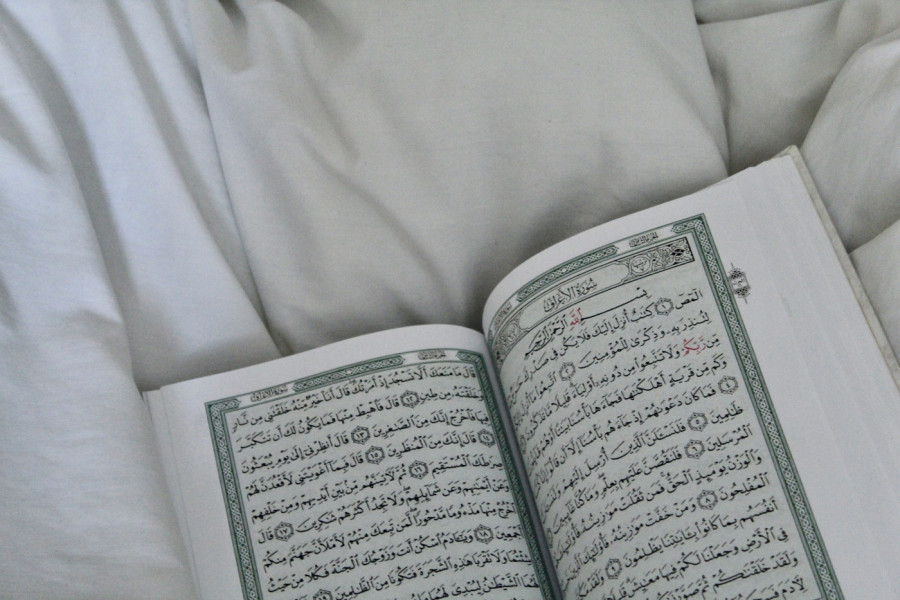 سُورَةُ الأَعْرَافِ
بِسْمِ ٱللَّهِ ٱلرَّحْمَٰنِ ٱلرَّحِيمِ
الٓمٓصٓ ١ كِتَٰبٌ أُنزِلَ إِلَيْكَ فَلَا يَكُن فِى
لِتُنذِرَ بِهِۦ وَذِكْرَىٰ لِلْمُؤْمِنِينَ ٢ ٱتَّبِعُوا۟
مِّن رَّبِّكُمْ وَلَا تَتَّبِعُوا۟ مِن دُونِهِۦٓ أَوْلِيَآءَ قَلِيلًا مَّا
وَكَم مِّن قَرْيَةٍ أَهْلَكْنَٰهَا فَجَآءَهَا بَأْسُنَا بَيَٰتًا أَوْ هُمْ
فَمَا كَانَ دَعْوَىٰهُمْ إِذْ جَآءَهُم بَأْسُنَآ إِلَّآ أَن قَالُوٓا۟
ظَٰلِمِينَ ٥ فَلَنَسْـَٔلَنَّ ٱلَّذِينَ أُرْسِلَ إِلَيْهِمْ
ٱلْمُرْسَلِينَ ٦ فَلَنَقُصَّنَّ عَلَيْهِم بِعِلْمٍ وَمَا كُنَّا
وَٱلْوَزْنُ يَوْمَئِذٍ ٱلْحَقُّ فَمَن ثَقُلَتْ مَوَٰزِينُهُۥ
ٱلْمُفْلِحُونَ ٨ وَمَنْ خَفَّتْ مَوَٰزِينُهُۥ فَأُو۟لَٰٓئِكَ
أَنفُسَهُم بِمَا كَانُوا۟ بِـَٔايَٰتِنَا يَظْلِمُونَ ٩ وَلَقَدْ
فِى ٱلْأَرْضِ وَجَعَلْنَا لَكُمْ فِيهَا مَعَٰيِشَ قَلِيلًا
وَلَقَدْ خَلَقْنَٰكُمْ ثُمَّ
لِءَادَمَ
سُورَةُ الأَعْرَافِ
قَالَ مَا مَنَعَكَ أَلَّا تَسْجُدَ إِذْ أَمَرْتُكَ قَالَ أَنَا۠ خَيْرٌ مِّنْهُ خَلَقْتَنِى مِن نَّارٍ
وَخَلَقْتَهُۥ مِن طِينٍ ١٢ قَالَ فَٱهْبِطْ مِنْهَا فَمَا يَكُونُ لَكَ أَن تَتَكَبَّرَ
فِيهَا فَٱخْرُجْ إِنَّكَ مِنَ ٱلصَّٰغِرِينَ ١٣ قَالَ أَنظِرْنِىٓ إِلَىٰ يَوْمِ يُبْعَثُونَ
١٤ قَالَ إِنَّكَ مِنَ ٱلْمُنظَرِينَ ١٥ قَالَ فَبِمَآ أَغْوَيْتَنِى لَأَقْعُدَنَّ لَهُمْ
صِرَٰطَكَ ٱلْمُسْتَقِيمَ ١٦ ثُمَّ لَـَٔاتِيَنَّهُم مِّنۢ بَيْنِ أَيْدِيهِمْ وَمِنْ خَلْفِهِمْ
وَعَنْ أَيْمَٰنِهِمْ وَعَن شَمَآئِلِهِمْ وَلَا تَجِدُ أَكْثَرَهُمْ شَٰكِرِينَ ١٧ قَالَ
ٱخْرُجْ مِنْهَا مَذْءُومًا مَّدْحُورًا لَّمَن تَبِعَكَ مِنْهُمْ لَأَمْلَأَنَّ جَهَنَّمَ مِنكُمْ
أَجْمَعِينَ ١٨ وَيَٰٓـَٔادَمُ ٱسْكُنْ أَنتَ وَزَوْجُكَ ٱلْجَنَّةَ فَكُلَا مِنْ حَيْثُ
شِئْتُمَا وَلَا تَقْرَبَا هَٰذِهِ ٱلشَّجَرَةَ فَتَكُونَا مِنَ ٱلظَّٰلِمِينَ ١٩
ٱلشَّيْطَٰنُ لِيُبْدِىَ لَهُمَا مَا